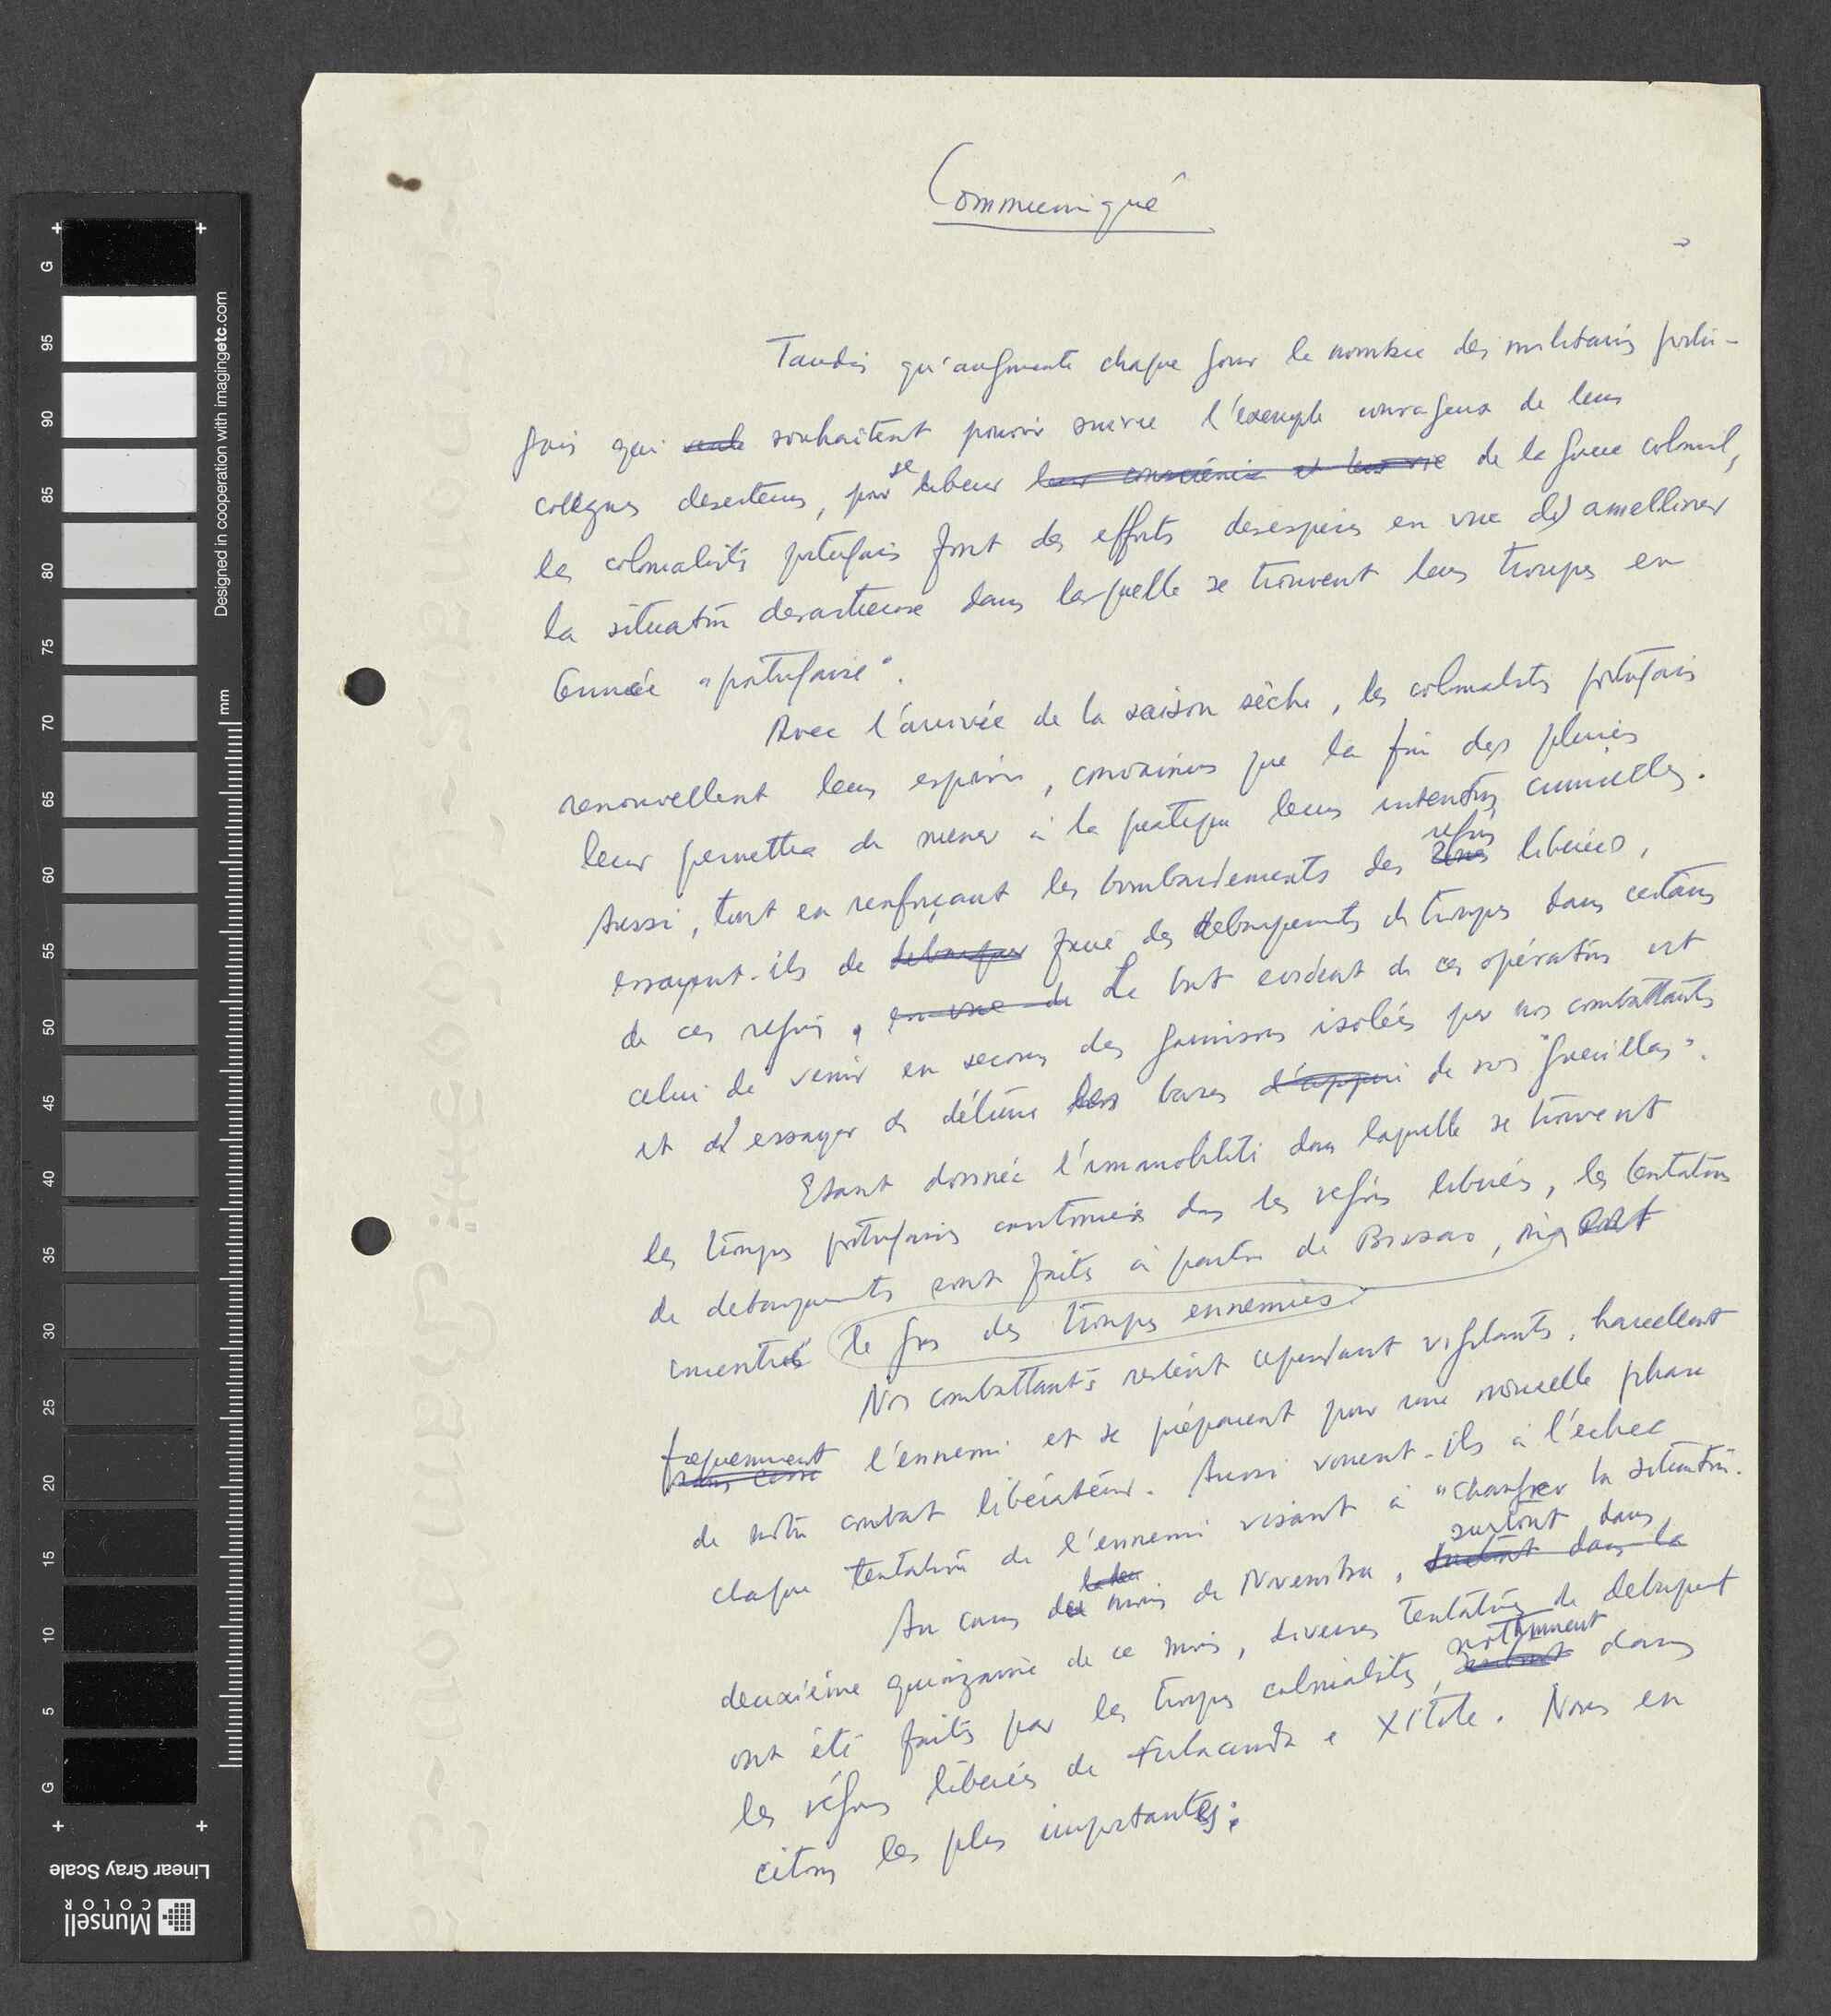 Communiqué
Tandis qu'augmente chaque jour le nombre des militaires portu-
gais qui souhaitent pouvoir suivre l'exemple courageux de leurs
collegues deserteurs, pour se liberer leur conscience et leur vie de la guerre colonial,
les colonialistes portugais font des efforts desesperés en vue d'ameliorer
la situation desastreuse dans laquelle se trouvent leurs troupes en
Guinée "portugaise".
Avec l'arrivée de la saison sèche, les colonialistes portugais
renouvellent leurs espoirs, convaincus que la fin des pluies
leur permettra de mener à la pratique leurs intentions criminelles.
Aussi, tout en renforçant les bombardements des zones régions libérées,
essayent-ils de debarquer faire des debarquements de troupes dans certaines
de ces régions. en vue de Le but evident de ces opérations est
celui de venir en secours des garnisons isolées par nos combattants
et d'essayer de détruire les bases d'appui de nos "guerillas".
Etant donnée l'immobilité dans laquelle se trouvent
les troupes portugaises cantonnées dans les régions libérées, les tentatives
de debarquements sont faites à partir de Bissao, où
concentré le gros des troupes ennemies.
Nos combattants restent cependant vigilants, harcellent
frequemment sans cesse l'ennemi et se préparent pour une nouvelle phase
de notre combat libérateur. Aussi vouent-ils à l'échec
chaque tentative de l'ennemi visant à "changer la situation.
Au cours du mois de Novembre, surtout dans la surtout dans
deuxième quinzaine de ce mois, diverses tentatives de debarquement
ont été faites par les troupes colonialistes, surtout notamment dans
les régions libérées de Fulacunda e Xitole. Nous en
citons les plus importantes:
G
95
90
85
80
75
70
65
60
55
50
45
40
35
30
25
20
15
10
5
G
mm
Designed in cooperation with imagingetc.com
Linear Gray Scale
Munsell
COLOR